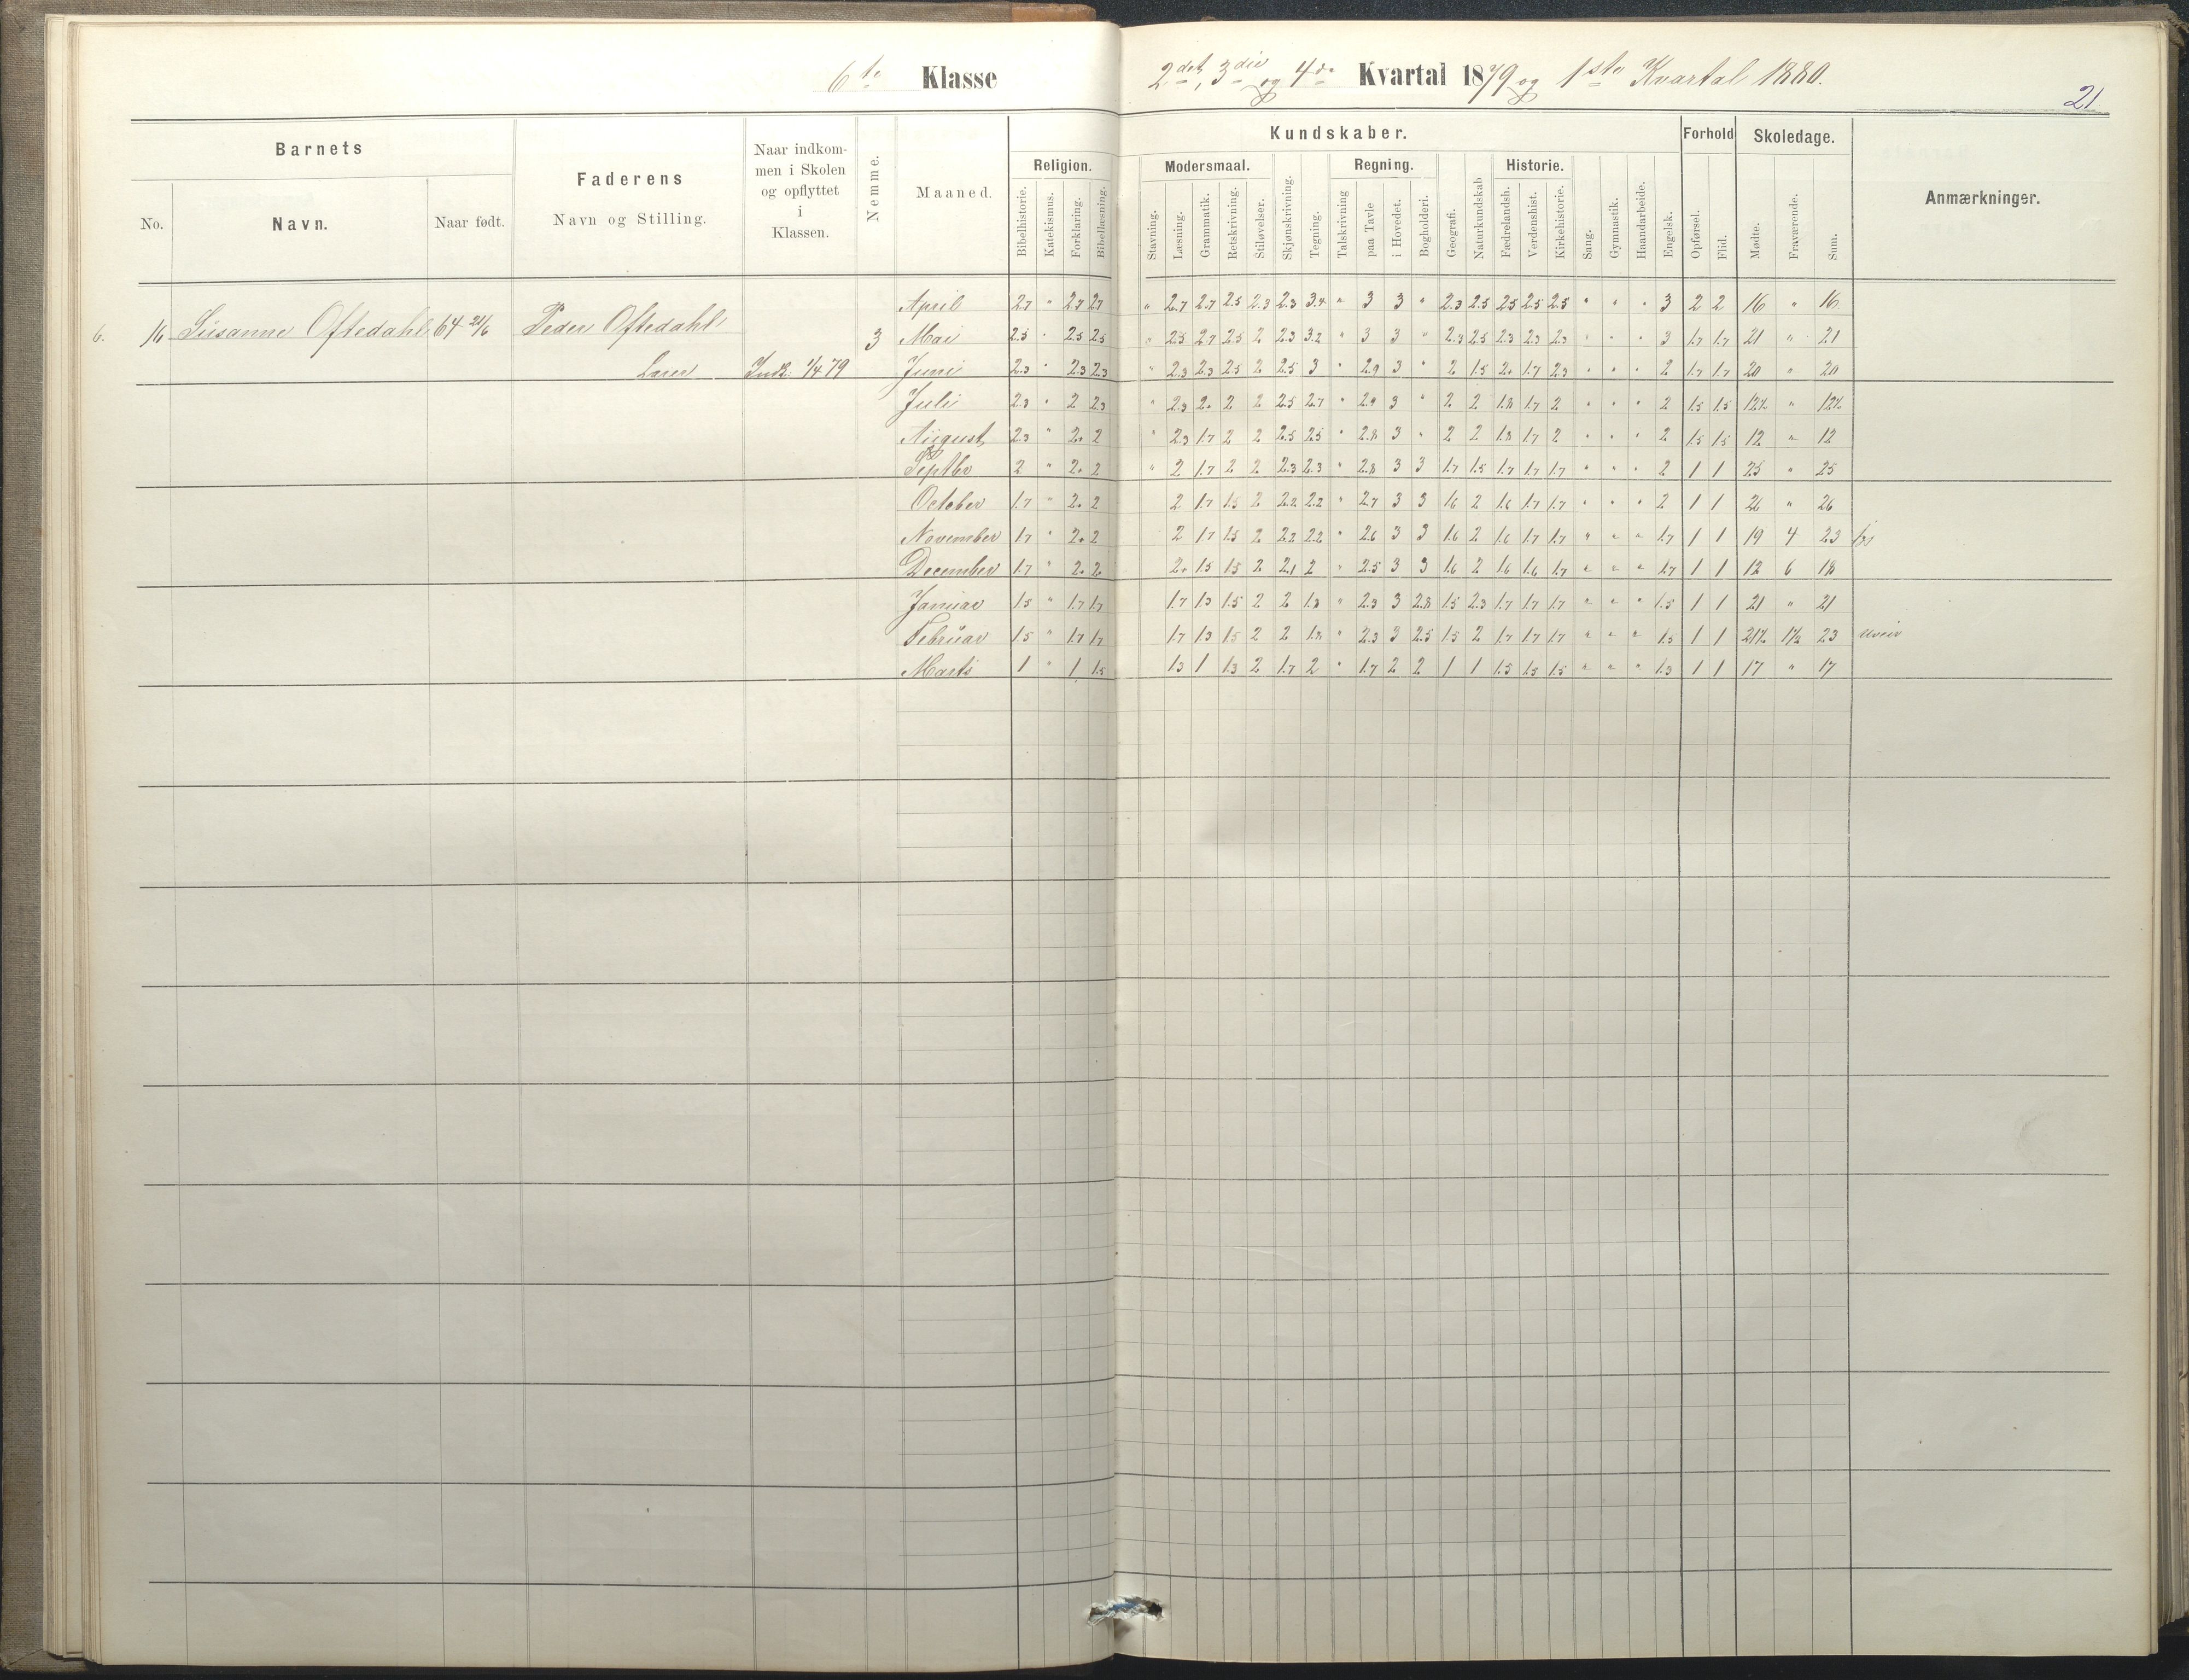 6te Klasse
2det, 3die og 4de Kvartal 1879 og 1ste Kvartal 1880.
21
Barnets
No.
Navn.
Naar født.
Faderens
Navn og Stilling.
Naar indkom-
men i Skolen
og opflyttet
i
Klassen.
Nemme.
Maaned.
Kundskaber.
Religion.
Bibelhistorie.
Katekismus.
Forklaring.
Bibellæsning.
Modersmaal.
Stavning.
Læsning.
Grammatik.
Retskrivning.
Stiløvelser.
Skjønskrivning.
Tegning.
Regning.
Talskrivning
paa Tavle
i Hovedet.
Bogholderi.
Geografi.
Naturkundskab
Historie.
Fædrelandsh.
Verdenshist.
Kirkehistorie.
Sang.
Gymnastik.
Haandarbeide.
Engelsk.
Forhold
Opførsel.
Flid.
Skoledage.
Mødte.
Fraværende.
Sum.
Anmærkninger.
6. 16 Susanne Oftedahl 64 21/6 Peder Oftedahl
Indk. 1/4 79
3
April 2.7 " 2.7 2.7 " 2.7 2.7 2.5 2.3 2.3 3.4 " 3 3 " 2.3 2.5 2.5 2.5 2.5 " " " 3 2 2 16 " 16
Mai 2.5 " 2.5 2.5 " 2.5 2.7 2.5 2 2.3 3.2 " 3 3 " 2.3 2.5 2.3 2.3 2.3 " " " 3 1.7 1.7 21 " 21
Juni 2.3 " 2.3 2.3 " 2.3 2.3 2.5 2 2.5 3 " 2.9 3 " 2 1.5 2. 1.7 2.3 " " " 2 1.7 1.7 20 " 20
Juli 2.3 " 2 2.3 " 2.3 2. 2 2 2.5 2.7 " 2.9 3 " 2 2 1.8 1.7 2 " " " 2 1.5 1.5 12½ " 12½
August 2.3 " 2. 2 " 2.3 1.7 2 2 2.5 2.5 " 2.8 3 " 2 2 1.8 1.7 2 " " " 2 1.5 1.5 12 " 12
Septbr 2 " 2. 2 " 2 1.7 2 2 2.3 2.3 " 2.8 3 3 1.7 1.5 1.7 1.7 1.7 " " " 2 1 1 25 " 25
October 1.7 " 2. 2 2 1.7 1.5 2 2.2 2.2 " 2.7 3 3 1.6 2 1.6 1.7 1.7 " " " 2 1 1 26 " 26
November 1.7 " 2. 2 2 1.7 1.5 2 2.2 2.2 " 2.6 3 3 1.6 2 1.6 1.7 1.7 " " " 1.7 1 1 19 4 23
December 1.7 " 2. 2. 2. 1.5 1.5 2 2.1 2 " 2.5 3 3 1.6 2 1.6 1.6 1.7 " " " 1.7 1 1 12 6 18
Januar 1.5 " 1.7 1.7 1.7 1.3 1.5 2 2 1.8 " 2.3 3 2.8 1.5 2.3 1.7 1.7 1.7 " " " 1.5 1 1 21 " 21
Februar 1.5 " 1.7 1.7 1.7 1.3 1.5 2 2 1.8 " 2.3 3 2.5 1.5 2 1.7 1.7 1.7 " " " 1.5 1 1 21½ 1½ 23 Uveir
Marts 1 " 1 1.5 1.3 1 1.3 2 1.7 2 " 1.7 2 2 1 1 1.5 1.5 1.5 " " " 1.3 1 1 17 " 17